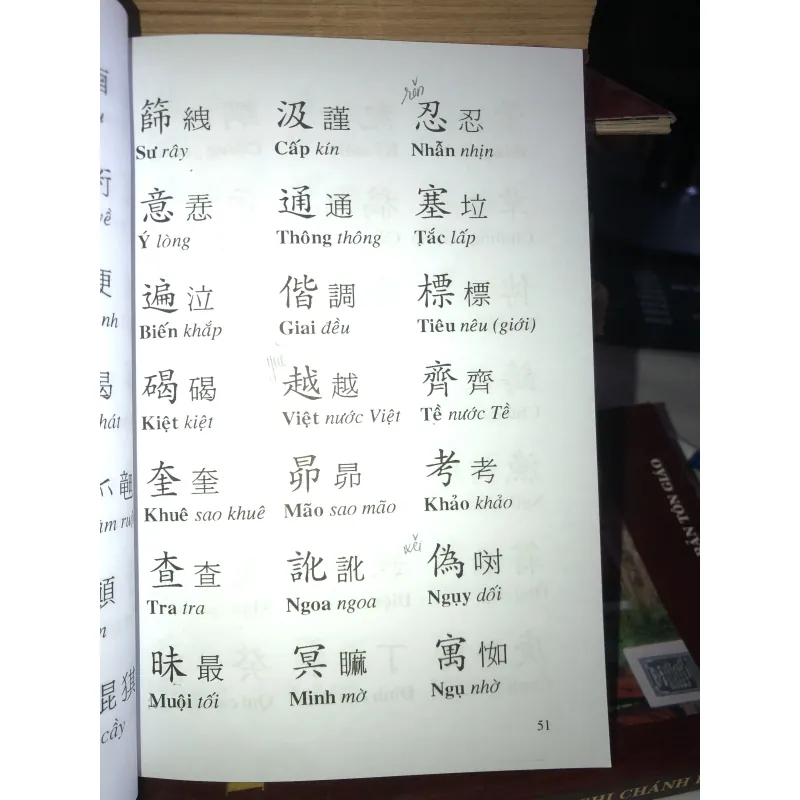 rốn
篩 絏 汲 謹 忍 忍
Sư rây Cấp kín Nhẫn nhịn
意 通 通 塞 垃
Ý lòng Thông thông Tắc lấp
遍 泣 偕 調 標 標
Biến khắp Giai đều Tiêu nêu (giới)
碣 碣 越 越 齊 齊
Kiệt kiệt Việt nước Việt Tề nước Tề
奎 奎 昴 昴 考 考
Khuê sao khuê Mão sao mão Khảo khảo
查 查 訛 訛 偽
Tra tra Ngoa ngoa Ngụy dối
昧 最 冥 寓
Muội tối Minh mờ Ngụ nhờ
51
術
về
便
nh
曷
hát
頓
n
昆 猉
cầy
BẢN TÔN GIÁO
CHÁNH